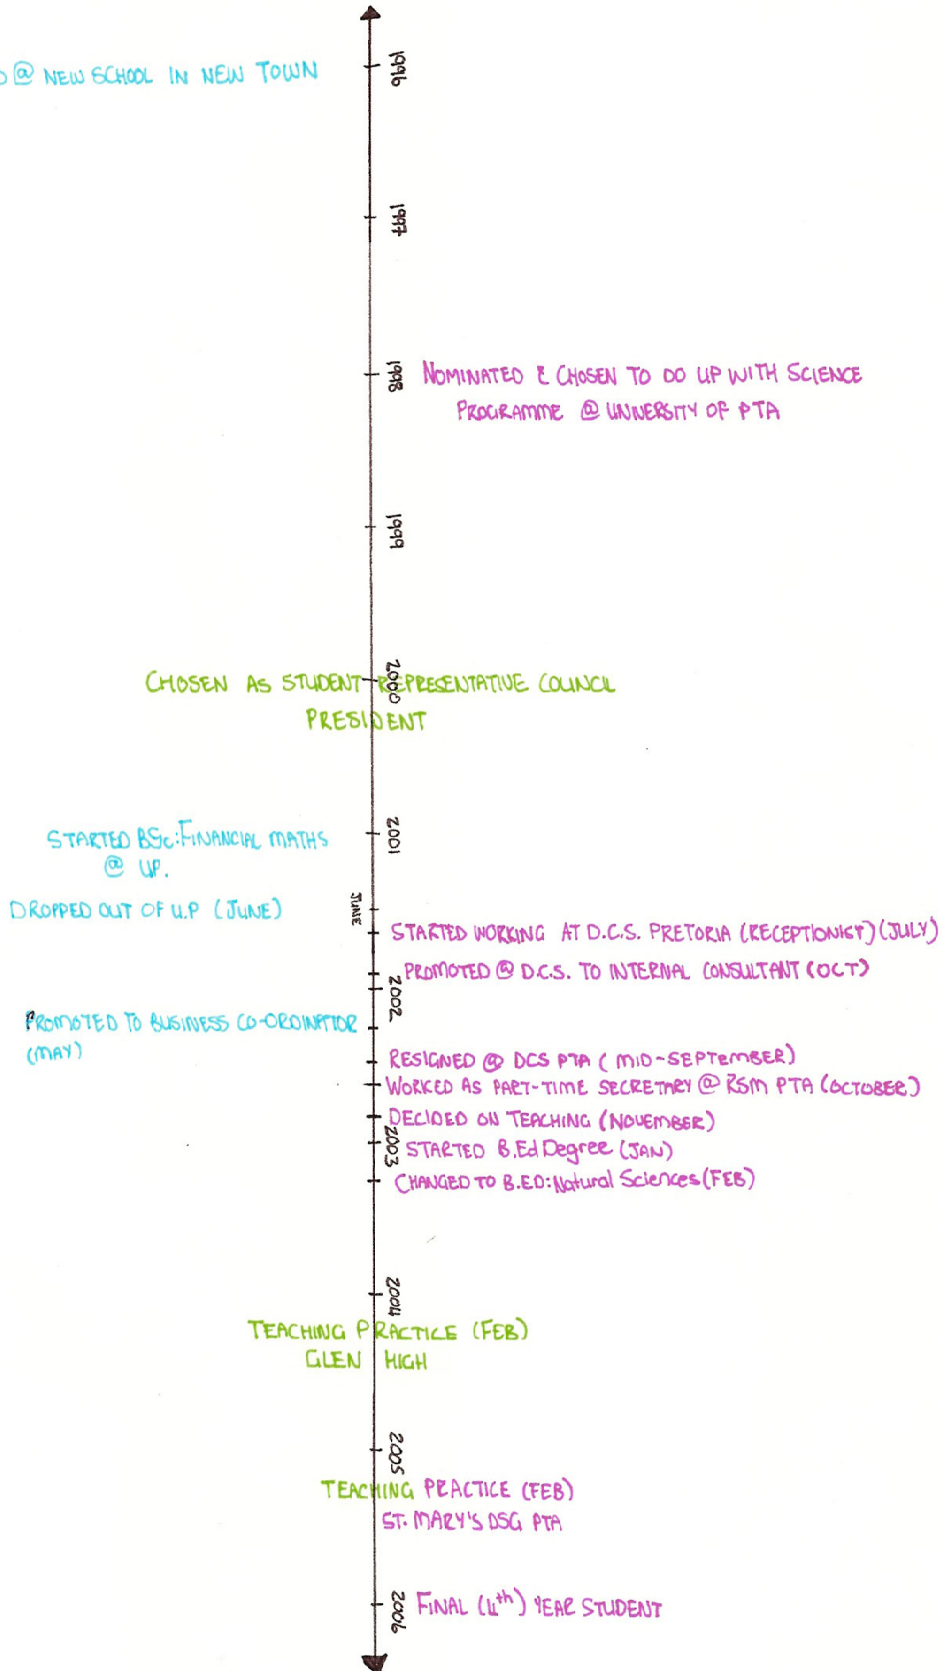 @ NEW SCHOOL IN NEW TOWN
1996
1997
1998
NOMINATED & CHOSEN TO DO UP WITH SCIENCE
PROGRAMME @ UNIVERSITY OF PTA
1999
2000
CHOSEN AS STUDENT REPRESENTATIVE COUNCIL
PRESIDENT
2001
STARTED BSc: FINANCIAL MATHS
@ UP.
JUNE
DROPPED OUT OF U.P (JUNE)
STARTED WORKING AT D.C.S. PRETORIA (RECEPTIONIST) (JULY)
PROMOTED @ D.C.S. TO INTERNAL CONSULTANT (OCT)
2002
PROMOTED TO BUSINESS CO-ORDINATOR
(MAY)
RESIGNED @ DCS PTA (MID-SEPTEMBER)
WORKED AS PART-TIME SECRETARY @ RSM PTA (OCTOBER)
DECIDED ON TEACHING (NOVEMBER)
2003
STARTED B.Ed Degree (JAN)
CHANGED TO B.ED: Natural Sciences (FEB)
2004
TEACHING PRACTICE (FEB)
GLEN HIGH
2005
TEACHING PRACTICE (FEB)
ST. MARY'S DSG PTA
2006
FINAL (4th) YEAR STUDENT